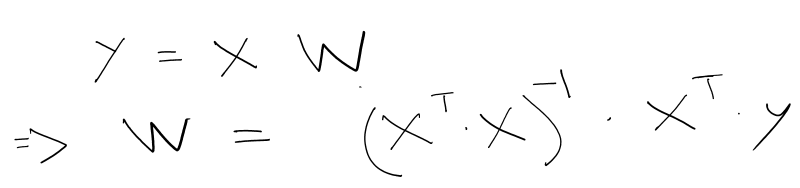 y = X W
=> W = (X^T · X)^-1 · X^T · y